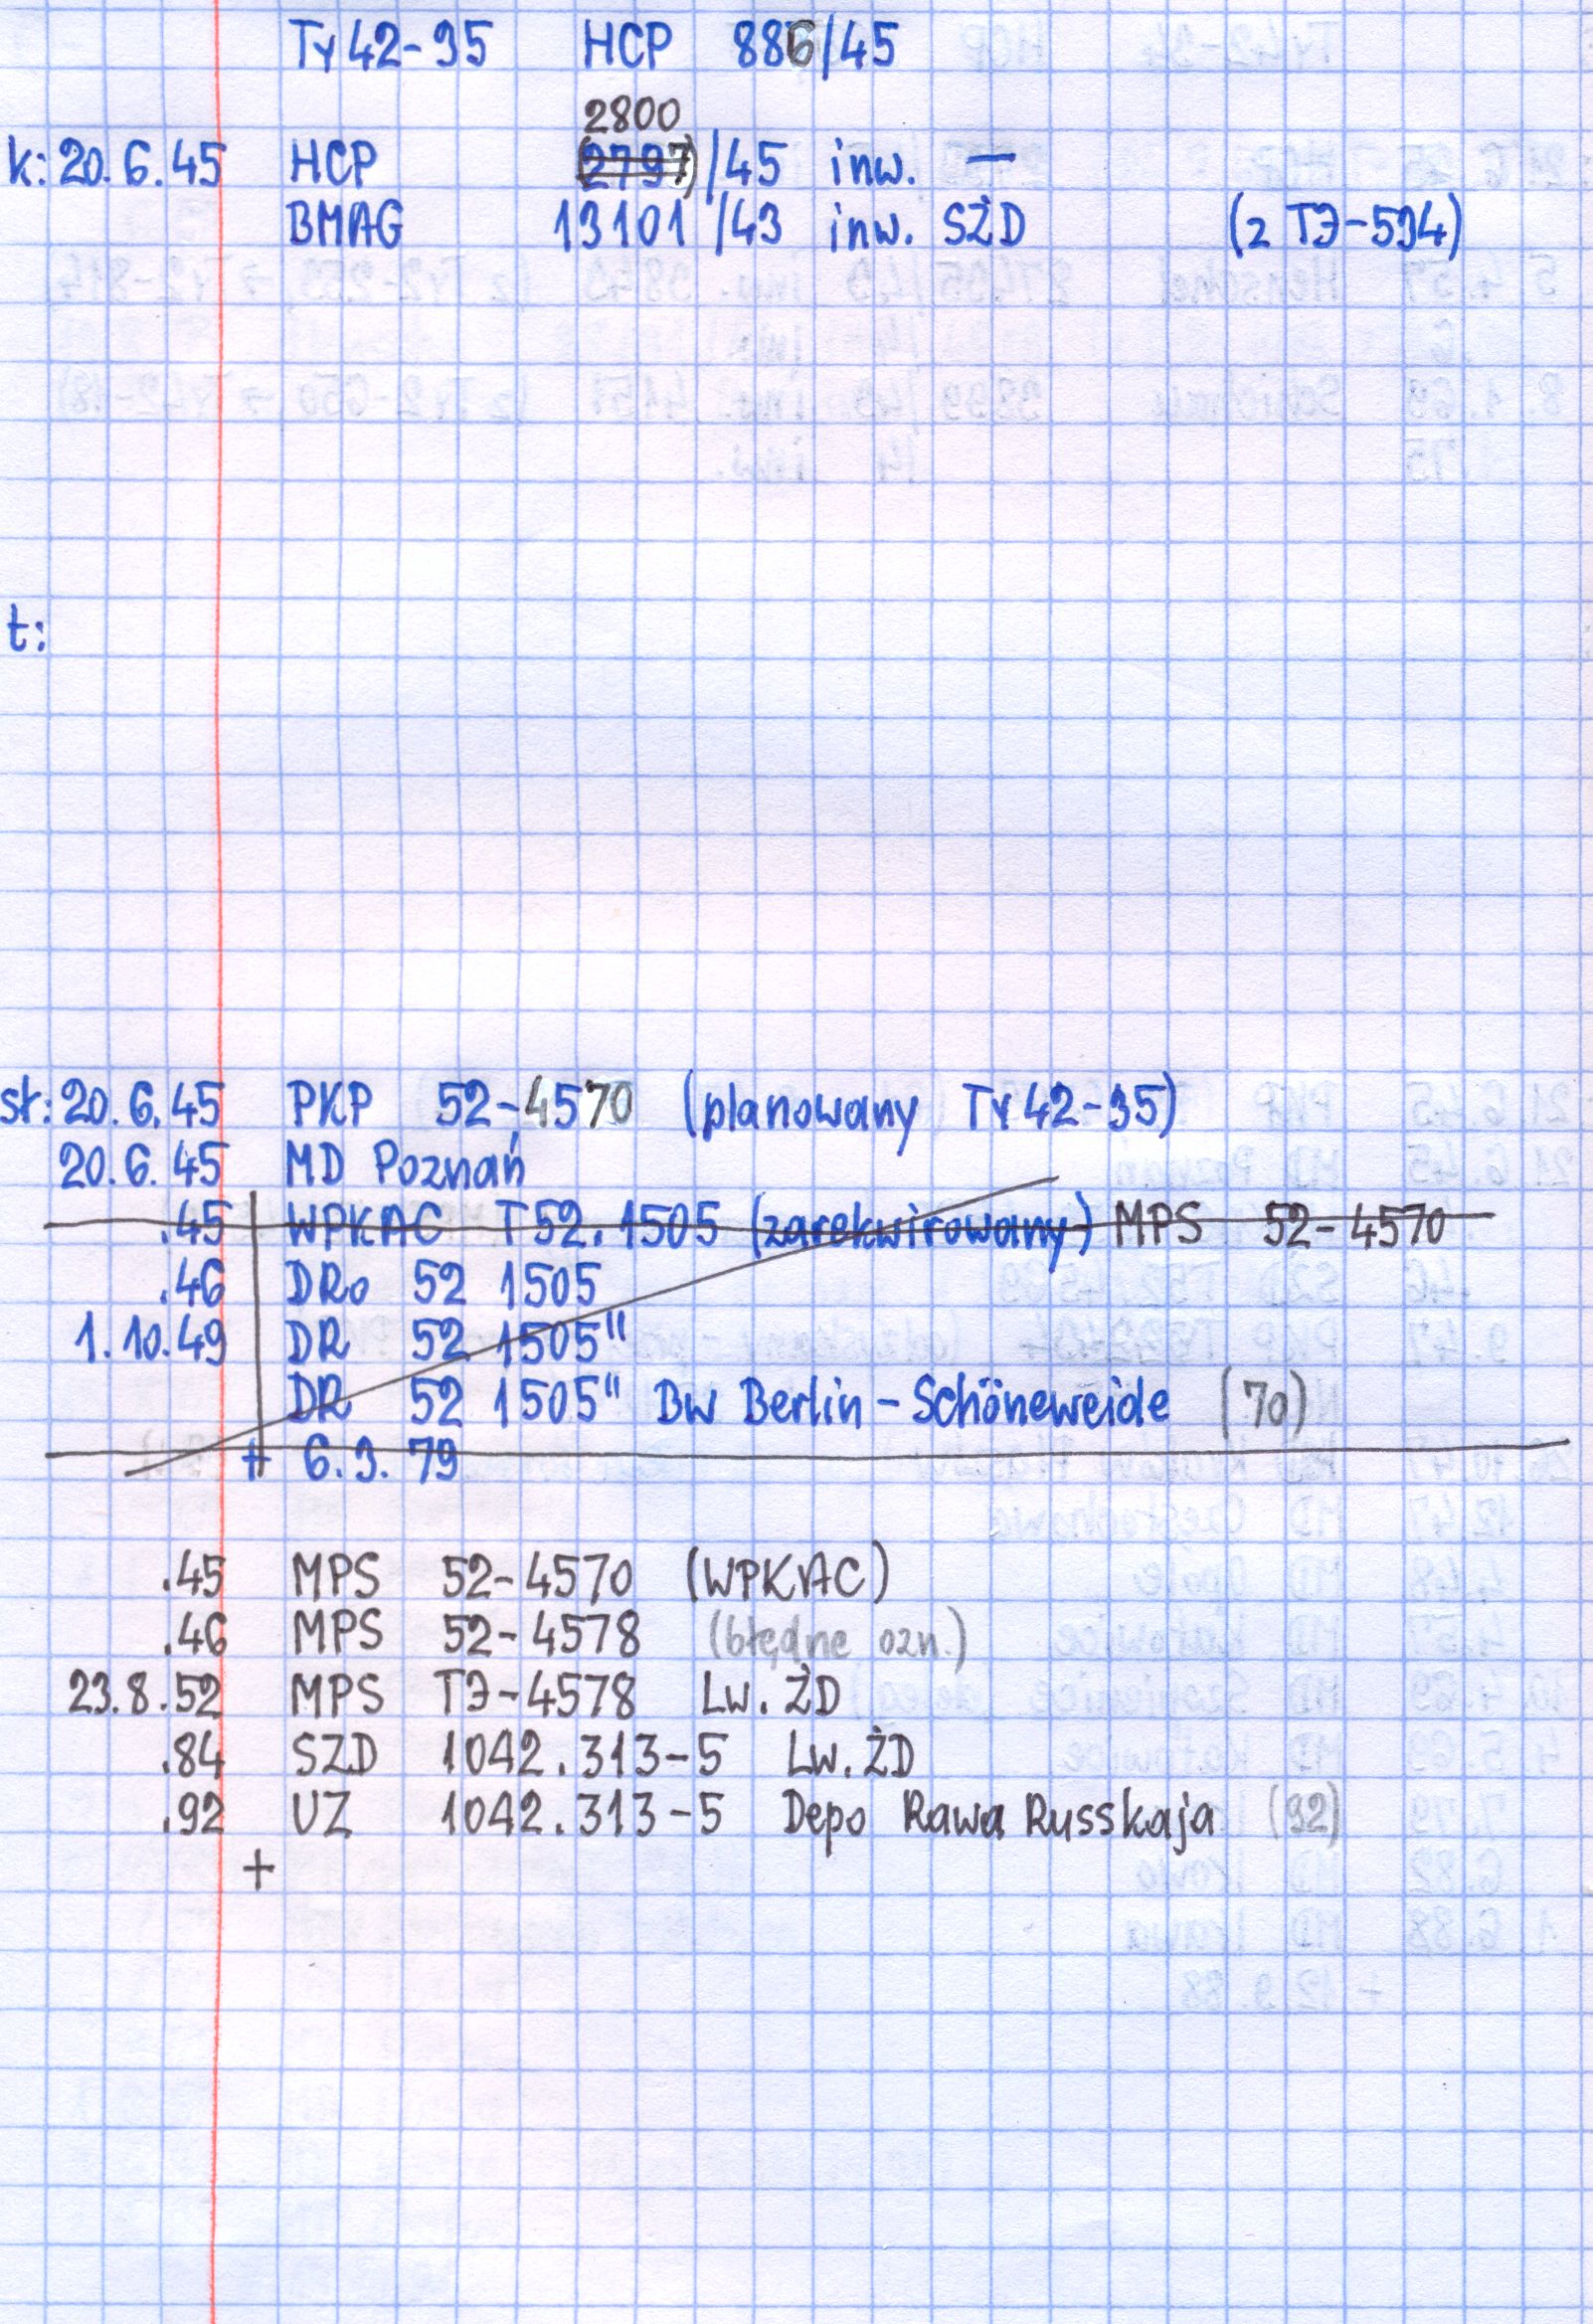 Ty42-95 HCP 886/45
2800
k: 20.6.45 HCP (2797)/45 inw. —
BMAG 13101/43 inw. SŻD (z TЭ-594)
t:
st: 20.6.45 PKP 52-4570 (planowany Ty42-95)
20.6.45 MD Poznań
.45 WPKAC T52.1505 (zarekwirowany) MPS 52-4570
.46 DRo 52 1505
1.10.49 DR 52 1505"
DR 52 1505" Bw Berlin-Schöneweide (70)
+ 6.9.79
.45 MPS 52-4570 (WPKAC)
.46 MPS 52-4578 (błędne ozn.)
23.8.52 MPS TЭ-4578 Lw. ŻD
.84 SZD 1042.313-5 Lw. ŻD
.92 UZ 1042.313-5 Depo Rawa Russkaja (92)
+